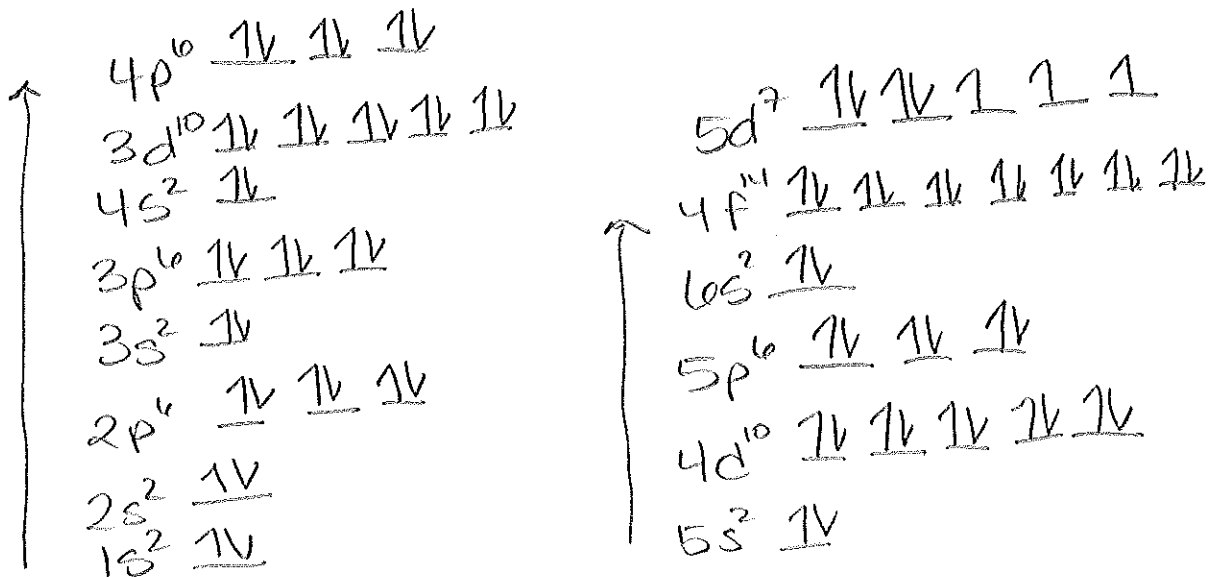 4p⁶ ↿⇂ ↿⇂ ↿⇂
3d¹⁰ ↿⇂ ↿⇂ ↿⇂ ↿⇂ ↿⇂
4s² ↿⇂
3p⁶ ↿⇂ ↿⇂ ↿⇂
3s² ↿⇂
2p⁶ ↿⇂ ↿⇂ ↿⇂
2s² ↿⇂
1s² ↿⇂
5d⁷ ↿⇂ ↿⇂ ↿ ↿ ↿
4f¹⁴ ↿⇂ ↿⇂ ↿⇂ ↿⇂ ↿⇂ ↿⇂ ↿⇂
6s² ↿⇂
5p⁶ ↿⇂ ↿⇂ ↿⇂
4d¹⁰ ↿⇂ ↿⇂ ↿⇂ ↿⇂ ↿⇂
5s² ↿⇂